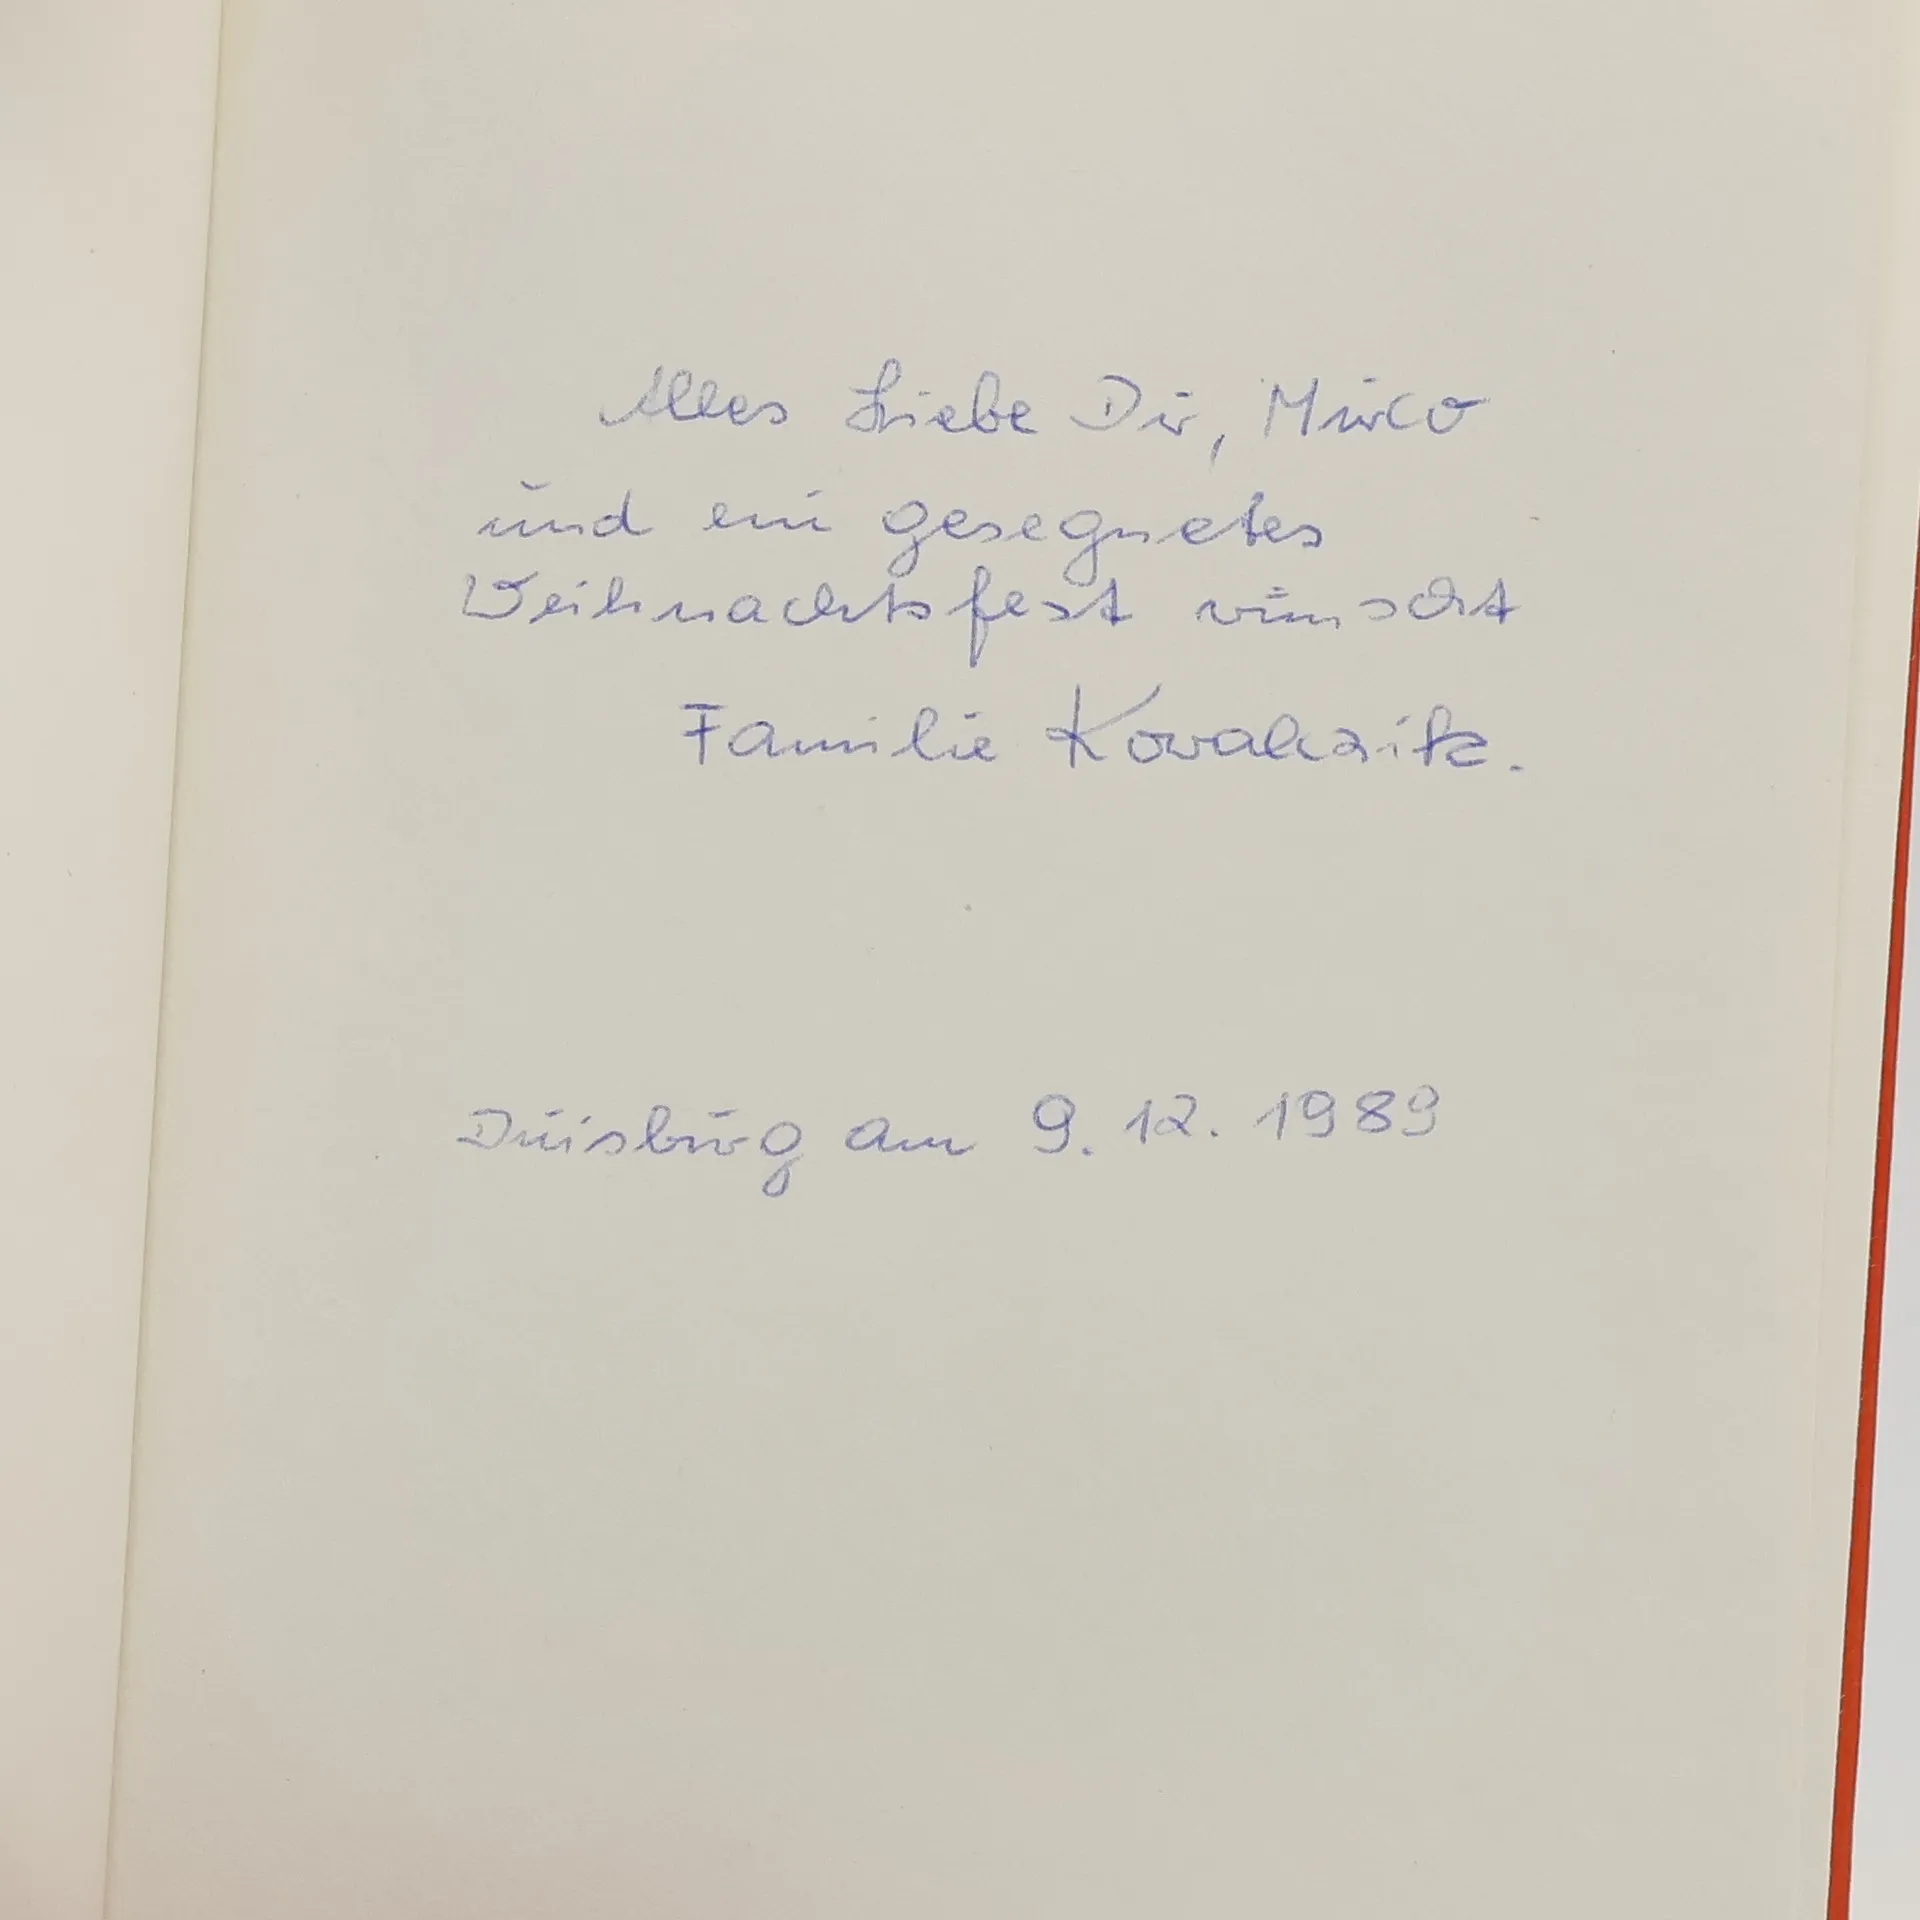 Alles Liebe Dir, Mirco
und ein gesegnetes
Weihnachtsfest wünscht
Familie Kowalczik.
Duisburg am 9. 12. 1989